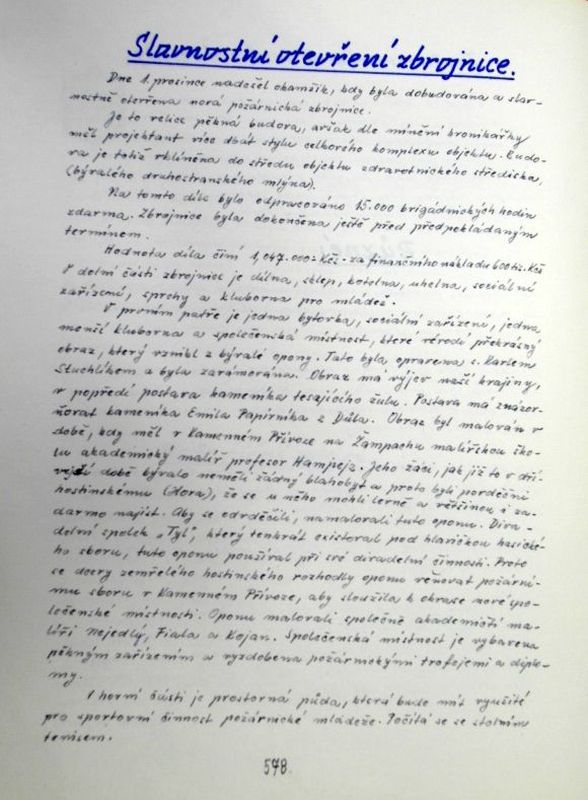 Slavnostní otevření zbrojnice.
Dne 1. prosince nadešel okamžik, kdy byla dobudována a slav-
nostně otevřena nová požárnická zbrojnice.
Je to velice pěkná budova, avšak dle mínění kronikářky
měl projektant více dbát stylu celkového komplexu objektu. Budo-
va je totiž vklíněna do středu objektu zdravotnického střediska,
(bývalého druhostranského mlýna).
Na tomto díle bylo odpracováno 15.000 brigádnických hodin
zdarma. Zbrojnice byla dokončena ještě před předpokládaným
termínem.
Hodnota díla činí 1,047.000.-Kčs. za finančního nákladu 600 tis. Kčs
V dolní části zbrojnice je dílna, sklep, kotelna, uhelna, sociální
zařízení, sprchy a klubovna pro mládež.
V prvním patře je jedna bytovka, sociální zařízení, jedna
menší klubovna a společenská místnost, které vévodí překrásný
obraz, který vznikl z bývalé opony. Tato byla opravena s. Karlem
Stuchlíkem a byla zarámována. Obraz má výjev naší krajiny,
v popředí postava kameníka tesajícího žulu. Postava má znázor-
ňovat kameníka Emila Papírníka z Důla. Obraz byl malován v
době, kdy měl v Kamenném Přívoze na Žampachu malířskou ško-
lu akademický malíř profesor Hampejz. Jeho žáci, jak již to v dří-
vější době bývalo neměli žádný blahobyt a proto byli povděčni
hostinskému (Hora), že se u něho mohli levně a většinou i za-
darmo najíst. Aby se odvděčili, namalovali tuto oponu. Diva-
delní spolek „Tyl", který tenkrát existoval pod hlavičkou hasické-
ho sboru, tuto oponu používal při své divadelní činnosti. Proto
se dcery zemřelého hostinského rozhodly oponu věnovat požární-
mu sboru v Kamenném Přívoze, aby sloužila k okrase nové spo-
lečenské místnosti. Oponu malovali společně akademičtí ma-
líři Nejedlý, Fiala a Kojan. Společenská místnost je vybavena
pěkným zařízením a vyzdobena požárnickými trofejemi a diplo-
my.
V horní části je prostorná půda, která bude mít využití
pro sportovní činnost požárnické mládeže. Počítá se se stolním
tenisem.
578.